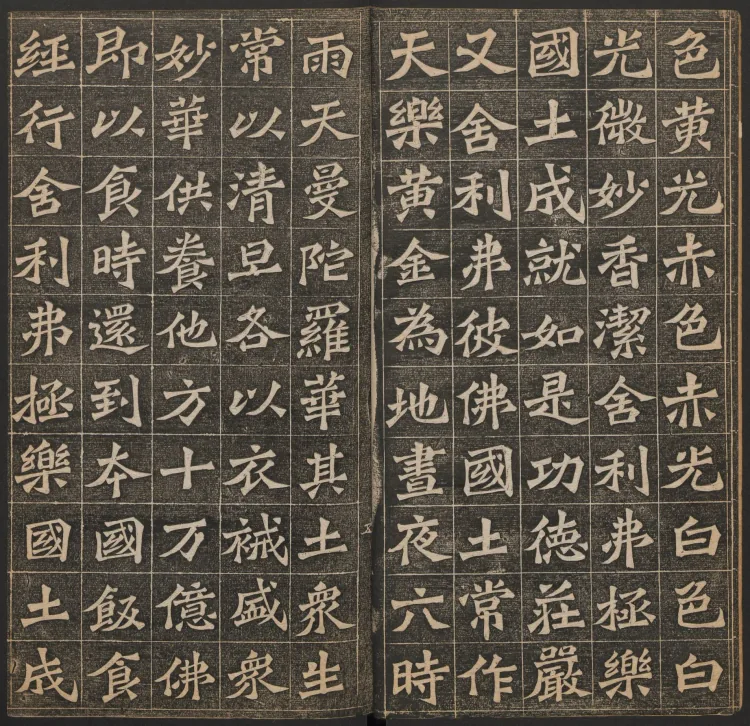 色黄光赤色赤光白色白
光微妙香潔舍利弗極樂
國土成就如是功德莊嚴
又舍利弗彼佛國土常作
天樂黄金為地晝夜六時
雨天曼陀羅華其土眾生
常以清旦各以衣裓盛眾
妙華供養他方十万億佛
即以食時還到本國飯食
經行舍利弗極樂國土成